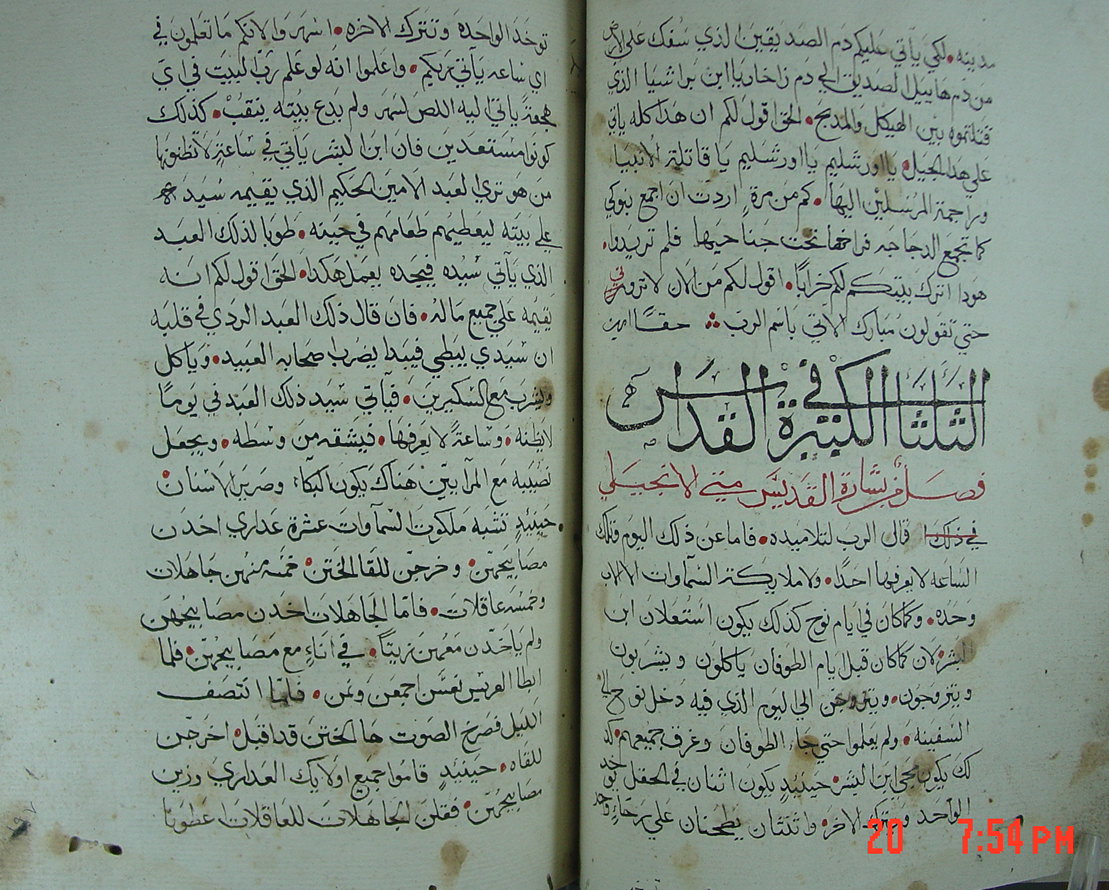 مدينه • لكي يأتي عليكم دم الصديقين الذي سفك علي الارض
من دم هابيل الصديق الي دم زاخاريا ابن براشيا الذي
قتلتموه بين الهيكل والمدبح • الحق اقول لكم ان هذا كله ياتي
علي هذا الجيل • يااورشليم يااورشليم يا قاتلة الانبيا
وراجمة المرسلين اليها • كم من مرة اردت ان اجمع بنوكي
كما تجمع الدجاجه فراخها تحت جناحيها فلم تريدوا •
هودا اترك بيتكم لكم خرابا • اقول لكم من الان لا تروني
حتي تقولون مبارك الاتي باسم الرب حقا امين
الثلثا الكبيرة في القداس
فصل من بشارة القديس متي الانجيلي
في ذلك قال الرب لتلاميده • فاما عن ذلك اليوم وتلك
الساعه لا يعرفها احدا • ولا ملايكة السماوات الا الاب
وحده • وكما كان في ايام نوح كذلك يكون استعلان ابن
البشر • لان كما كان قبل ايام الطوفان ياكلون ويشربون
ويتزوجون • ويتزوجن الي اليوم الذي فيه دخل نوح الي
السفينه • ولم يعلموا حتي جاء الطوفان وغرق جميعهم • كد
لك يكون مجي ابن البشر • حينيدٍ يكون اثنان في الحقل يوخد
الواحد ويترك الاخر • واثنتان يطحنان علي رحاء واحد
توخد الواحدة وتترك الاخره • اسهروا لانكم ما تعلمون في
اي ساعه يأتي ربكم • واعلموا انه لو علم رب البيت في اي
هجعة ياتي اليه اللص لسهر ولم يدع بيته ينقب • كذلك
كونوا مستعدين فان ابن البشر ياتي في ساعة لا تظنونها
من هو تري العبد الامين الحكيم الذي يقيمه سيده
علي بيته ليعطيهم طعامهم في حينه • طوبا لذلك العبد
الذي يأتي سيده فيجده يعمل هكدا • الحق اقول لكم انه
يقيمه علي جميع ماله • فان قال ذلك العبد الردي في قلبه
ان سيدي يبطي فيبدا يضرب اصحابه العبيد • وياكل
ويشرب مع السكيرين • فيأتي سيد ذلك العبد في يوما
لا يظنه • وساعة لا يعرفها • فيشقه من وسطه • ويجعل
نصيبه مع المرآيين هناك يكون البكاء وصرير الاسنان
• حينيدٍ تشبه ملكوت السماوات عشرة عداري اخدن
مصابيحهن • وخرجن للقا الختن • خمسة منهن جاهلات
وخمسه عاقلات • فاما الجاهلات اخدن مصابيحهن
ولم ياخدن معهن زيتا • في اناء مع مصابيحهن • فلما
ابطا العريس نعسن اجمعن ونمن • فلما انتصف
الليل فصرخ الصوت ها الختن قد اقبل • اخرجن
للقاه • حينيدٍ قاموا جميع اولايك العداري وزين
مصابيحهن • فقلن الجاهلات للعاقلات عطونا
20 7:54 PM